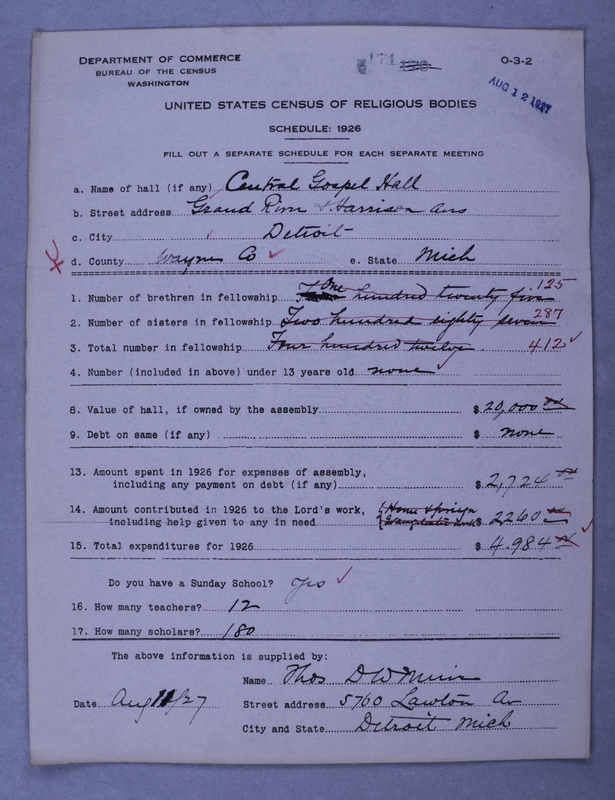 DEPARTMENT OF COMMERCE
BUREAU OF THE CENSUS
WASHINGTON
171
O-3-2
AUG 12 1927
UNITED STATES CENSUS OF RELIGIOUS BODIES
SCHEDULE: 1926
FILL OUT A SEPARATE SCHEDULE FOR EACH SEPARATE MEETING
a. Name of hall (if any) Central Gospel Hall
b. Street address Grand River & Harrison Avs
c. City Detroit
d. County Wayne Co e. State Mich
1. Number of brethren in fellowship One hundred twenty five 125
2. Number of sisters in fellowship Two hundred eighty seven 287
3. Total number in fellowship Four hundred twelve 412
4. Number (included in above) under 13 years old none
8. Value of hall, if owned by the assembly $ 20,000
9. Debt on same (if any) $ none
13. Amount spent in 1926 for expenses of assembly,
including any payment on debt (if any) $ 2,724
14. Amount contributed in 1926 to the Lord's work,
including help given to any in need Home Foreign $ 2260
15. Total expenditures for 1926 $ 4,984
Do you have a Sunday School? Yes
16. How many teachers? 12
17. How many scholars? 180
The above information is supplied by:
Name Thos D W Muir
Date Aug 11/27 Street address 5760 Lawton Av
City and State Detroit Mich